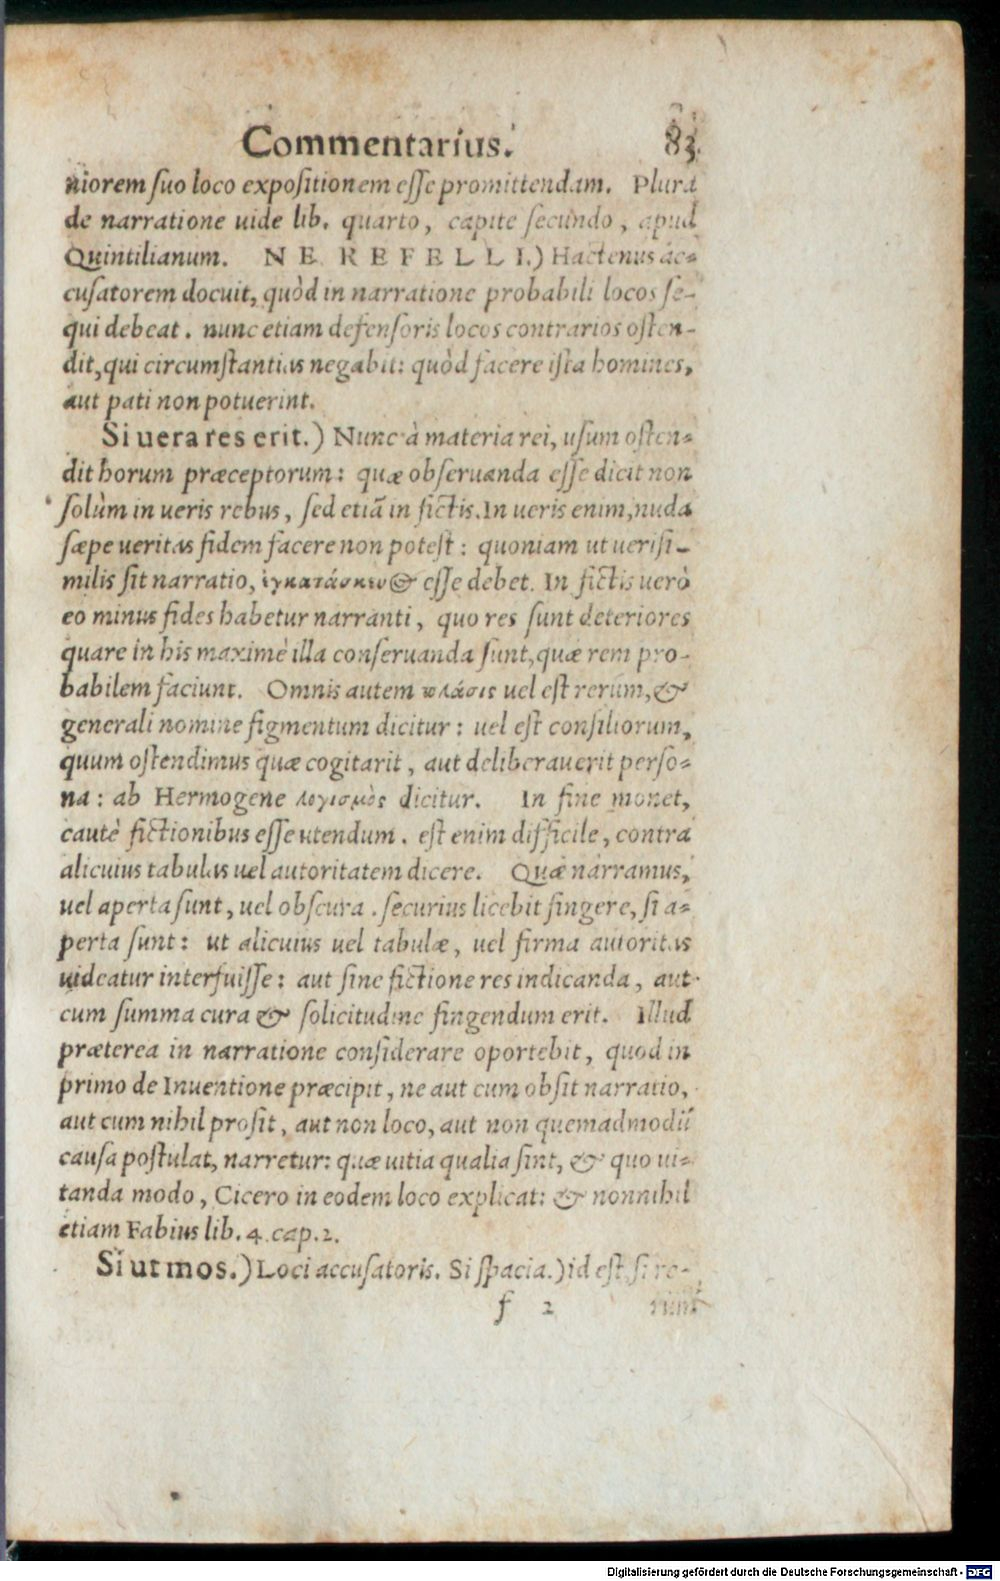 Commentarius. 83.
niorem suo loco expositionem esse promittendam. Plura
de narratione uide lib. quarto, capite secundo, apud
Quintilianum. NE REFELLI.) Hactenus ac-
cusatorem docuit, quòd in narratione probabili locos se-
qui debeat. nunc etiam defensoris locos contrarios osten-
dit, qui circumstantias negabit: quòd facere ista homines,
aut pati non potuerint.
Si uera res erit.) Nunc à materia rei, usum osten-
dit horum præceptorum: quæ obseruanda esse dicit non
solùm in ueris rebus, sed etiã in fictis. In ueris enim, nuda
sæpe ueritas fidem facere non potest: quoniam ut uerisi-
milis sit narratio, ἐγκατάσκευ@ esse debet. In fictis uerò
eo minus fides habetur narranti, quo res sunt deteriores
quare in his maximè illa conseruanda sunt, quæ rem pro-
babilem faciunt. Omnis autem πλάσις uel est rerum, &
generali nomine figmentum dicitur: uel est consiliorum,
quum ostendimus quæ cogitarit, aut deliberauerit perso-
na: ab Hermogene λογισμὸς dicitur. In fine monet,
cautè fictionibus esse utendum. est enim difficile, contra
alicuius tabulas uel autoritatem dicere. Quæ narramus,
uel aperta sunt, uel obscura. securius licebit fingere, si a-
perta sunt: ut alicuius uel tabulæ, uel firma autoritas
uideatur interfuisse: aut sine fictione res indicanda, aut
cum summa cura & solicitudine fingendum erit. Illud
præterea in narratione considerare oportebit, quod in
primo de Inuentione præcipit, ne aut cum obsit narratio,
aut cum nihil prosit, aut non loco, aut non quemadmodũ
causa postulat, narretur: quæ uitia qualia sint, & quo ui-
tanda modo, Cicero in eodem loco explicat: & nonnihil
etiam Fabius lib. 4. cap. 2.
Si ut mos.) Loci accusatoris. Si spacia.) id est, si re-
f 2 rum
Digitalisierung gefördert durch die Deutsche Forschungsgemeinschaft - DFG